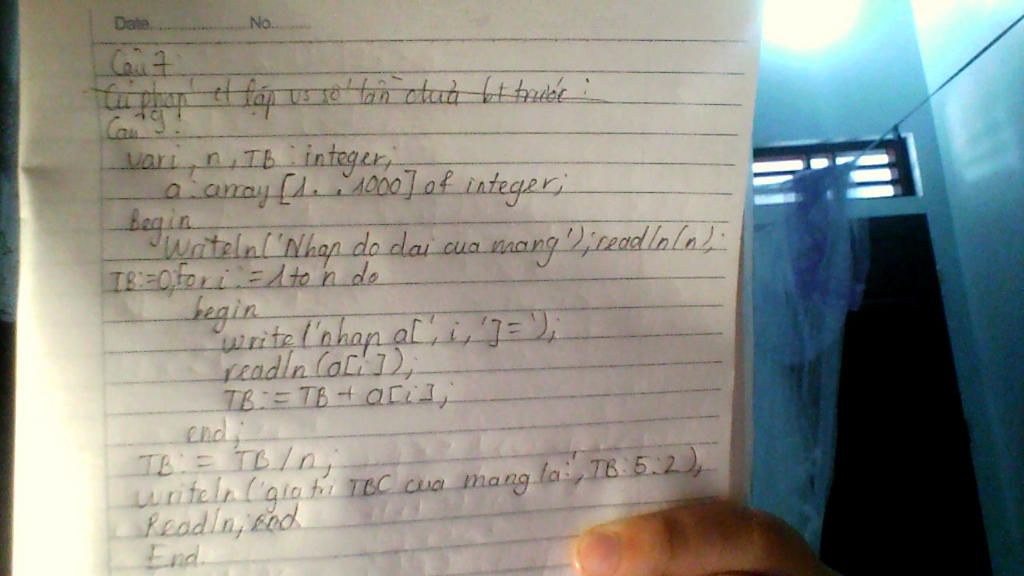 Date No
Câu 7
Cú pháp ct lặp vs số lần chưa bt trước :
Câu 9:
var i, n, TB : integer;
a : array [1..1000] of integer;
Begin
Writeln('Nhap do dai cua mang'); readln(n);
TB:=0; for i := 1 to n do
begin
write('nhap a[', i, ']=');
readln(a[i]);
TB := TB + a[i];
end;
TB := TB / n;
Writeln('gia tri TBC cua mang la:', TB:5:2);
Readln; end
End.